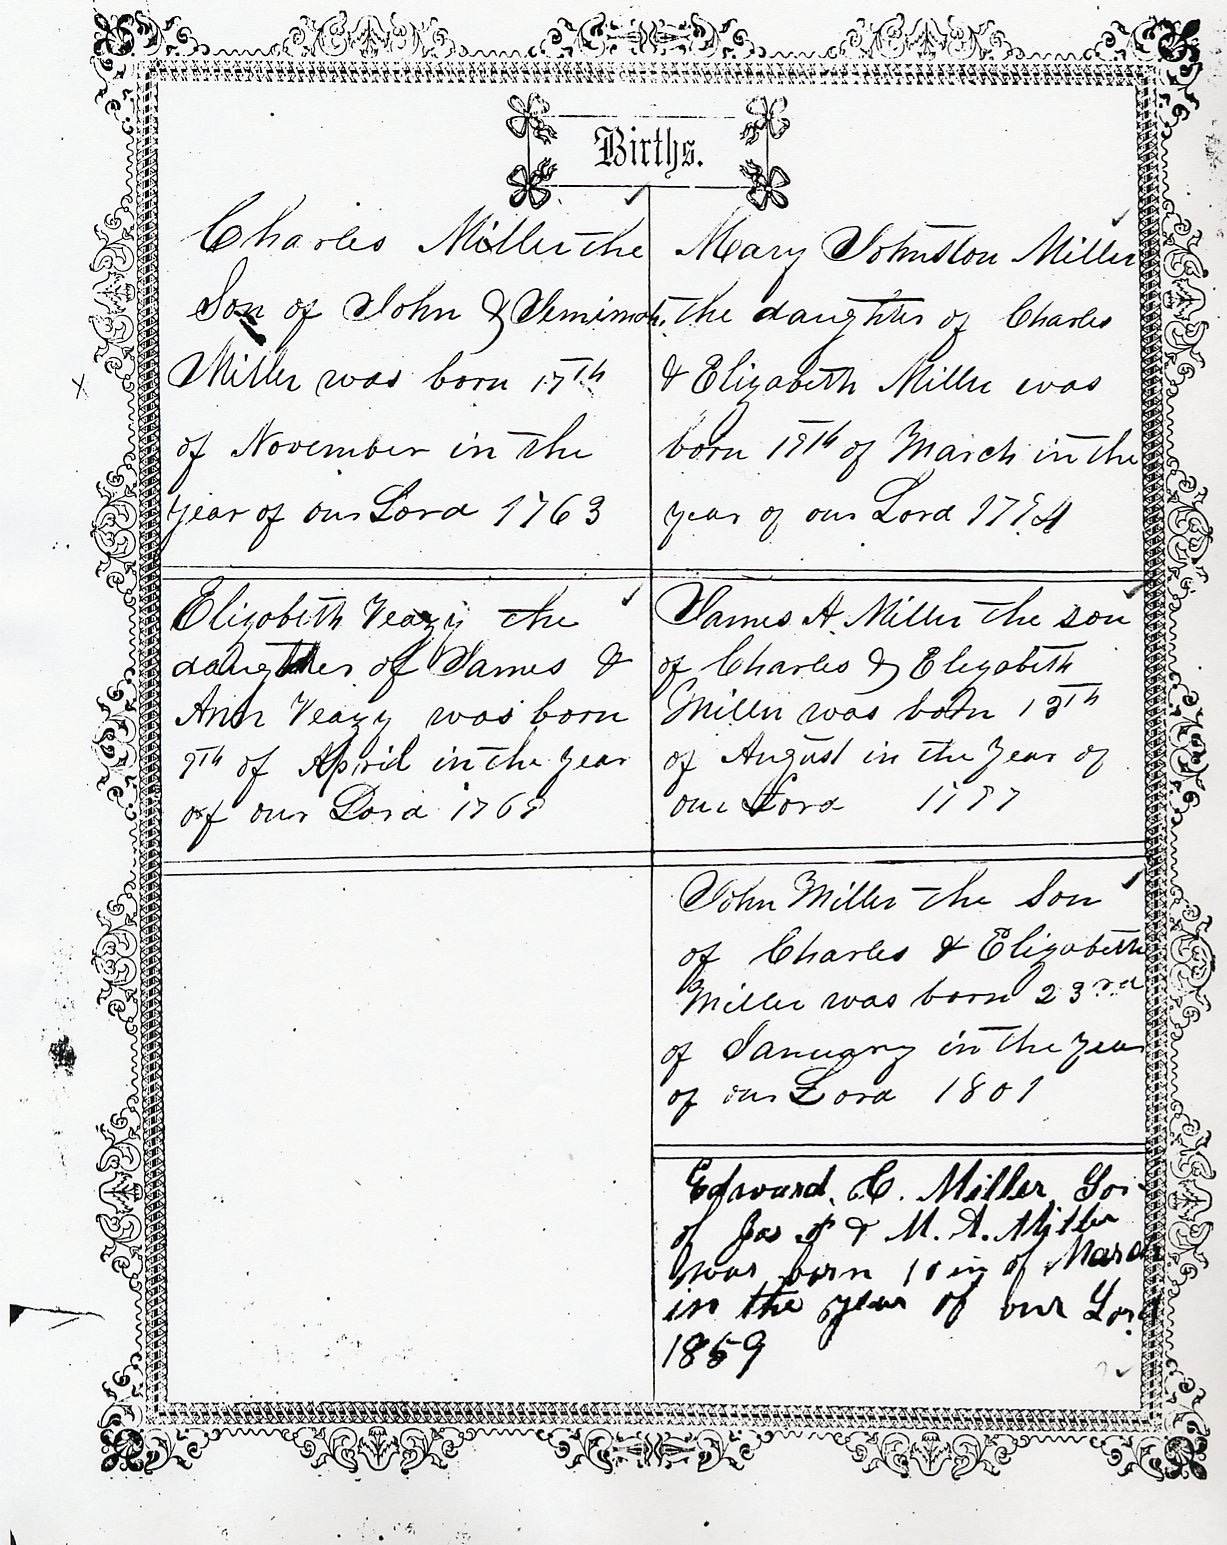 Births.
Charles Miller the
Son of John & Jemimah
Miller was born 17th
of November in the
year of our Lord 1763
Elizabeth Veazy the
daughter of James &
Ann Veazy was born
9th of April in the year
of our Lord
Mary Johnston Miller
the daughter of Charles
& Elizabeth Miller was
born of March in the
year of our Lord
James A. Miller the son
of Charles & Elizabeth
Miller was born
of August in the year of
our Lord
John Miller the Son
of Charles & Elizabeth
Miller was born 23rd
of January in the year
of our Lord 1801
Edward. C. Miller Son
of Jas & M. A. Miller
was born of March
in the year of our Lord
1859